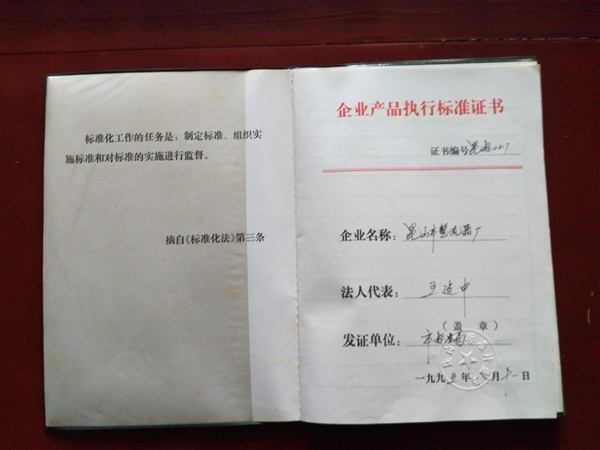 标准化工作的任务是：制定标准、组织实
施标准和对标准的实施进行监督。
摘自《标准化法》第三条
企业产品执行标准证书
证书编号
企业名称：昆山市整流器厂
法人代表：王适中
（盖 章）
发证单位：市标准局
一九九五年 月十一日